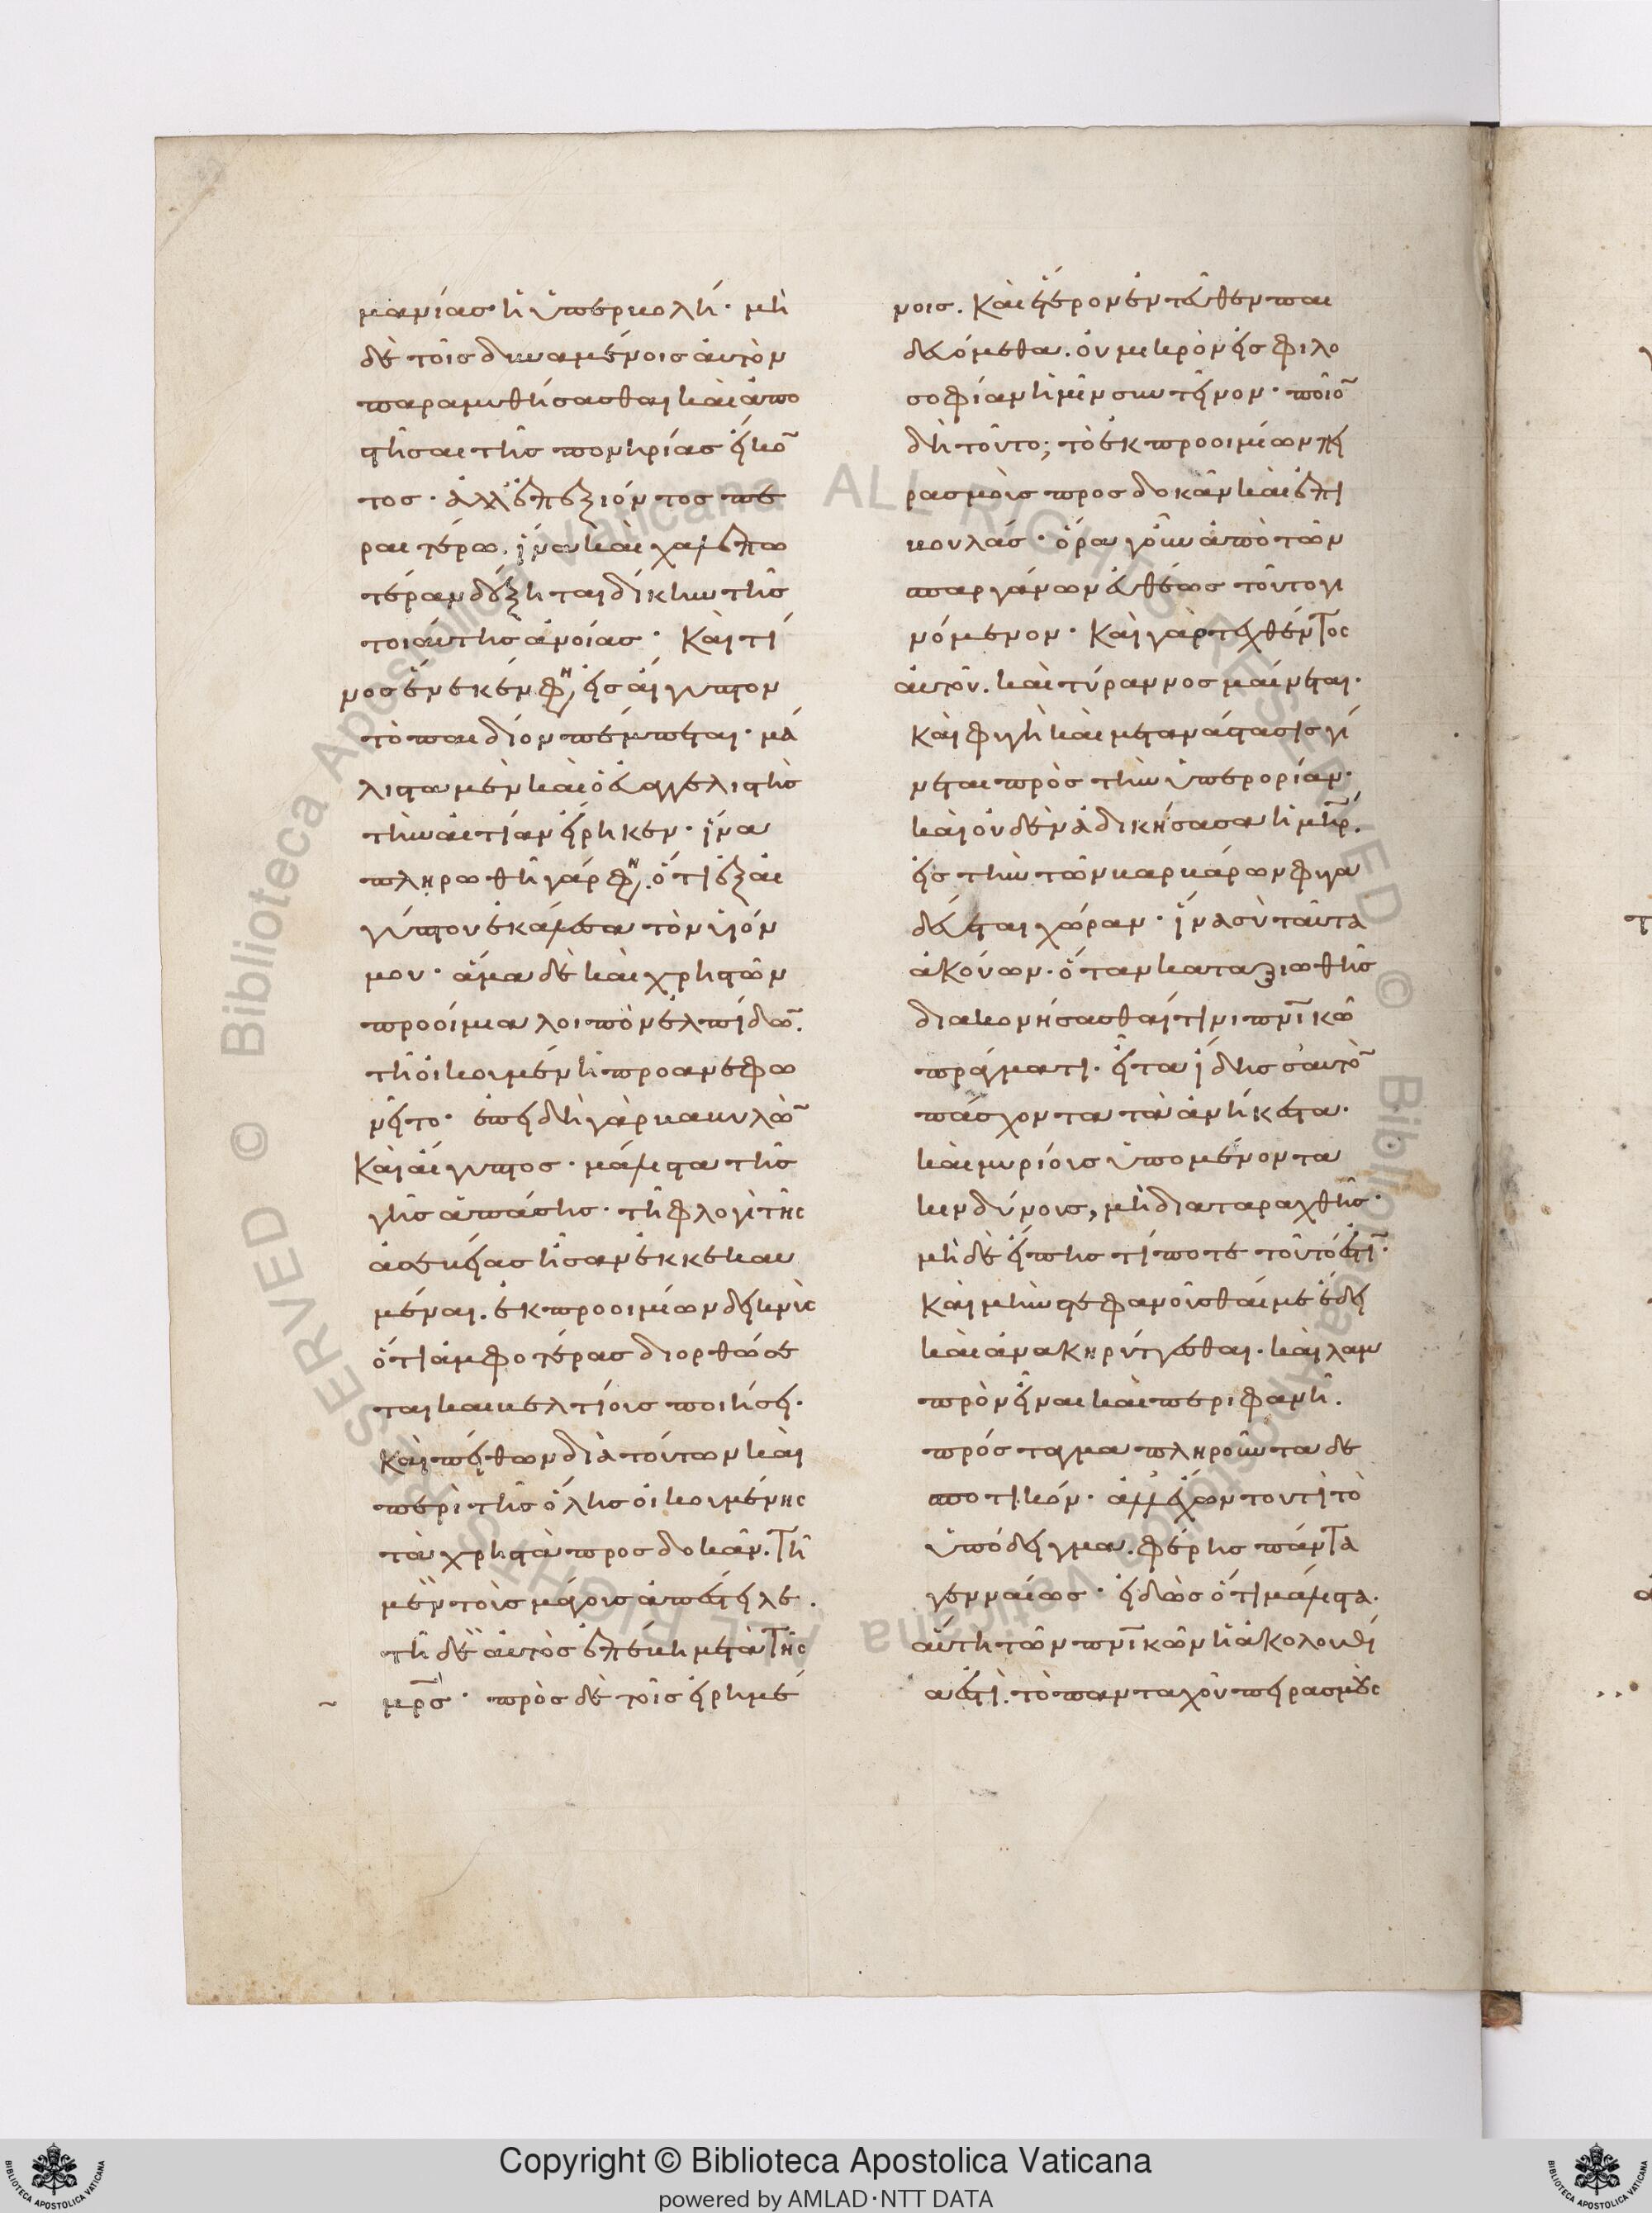 μανίας ἡ ὑπερβολή· μη
δὲ τοῖς δυναμένοις αὐτὸν
παραμυθήσασθαι καὶ ἀπο
στῆσαι τῆς πονηρίας εἴκο̅
τος· ἀλλ' ἐπεξιόντος πε
ραιτέρω. ἵνα καὶ χαλεπω
τέραν δέξηται δίκην τῆς
τοιαύτης ἀνοίας· Καὶ τί
νος ἕνεκεν φη, εἰς αἴγυπτον
τὸ παιδίον πέμπεται· μά
λιστα μὲν καὶ ὁ εὐαγγελιστὴς
τὴν αἰτίαν εἴρηκεν· ἵνα
πληρωθῆ γάρ φη. ὅτι ἐξ αἰ
γύπτου ἐκάλεσα τὸν υἱόν
μου· ἅμα δὲ καὶ χρηστῶν
προοίμια λοιπὸν ἐλπίδω̅.
τῆ οἰκουμένη προανεφω
νεῖτο· ἐπειδὴ γὰρ βαβυλὼ̅
Καὶ αἴγυπτος· μάλιστα τῆς
γῆς ἁπάσης· τῆ φλογὶ τῆς
ἀσεβείας ἦσαν ἐκκεκαυ
μέναι. ἐκ προοιμίων δεικνὺς
ὅτι ἀμφοτέρας διορθώσε
ται καὶ βελτίους ποιήσει·
Καὶ πείθων διὰ τούτων καὶ
περὶ τῆς ὅλης οἰκουμένης
τὰ χρηστὰ προσδοκᾶν. τῆ
μὲν τοὺς μάγους ἀπέστειλε.
τῆ δὲ αὐτὸς ἐπέβη μετὰ τῆς
μρ̅ς· πρὸς δὲ τοῖς εἰρημέ
νοις. Καὶ ἕτερον ἐντεῦθεν παι
δευόμεθα. οὐ μικρὸν εἰς φιλο
σοφίαν ἡμῖν συντεῖνον· ποῖο̅
δὴ τοῦτο; τὸ ἐκ προοιμίων πει
ρασμοὺς προσδοκᾶν καὶ ἐπι
βουλάς· ὅρα γοῦν ἀπὸ τῶν
σπαργάνων εὐθέως τοῦτο γι
νόμενον· Καὶ γὰρ τεχθέντος
αὐτοῦ. καὶ τύραννος μαίνεται·
Καὶ φυγὴ καὶ μετανάστασις γί
νεται πρὸς τὴν ὑπερορίαν·
καὶ οὐδὲν ἀδικήσασα ἡ μη̅ρ.
εἰς τὴν τῶν βαρβάρων φυγα
δεύεται χώραν· ἵνα σὺ ταῦτα
ἀκούων· ὅταν καταξιωθῆς
διακονήσασθαί τινι πνι̅κῶ
πράγματι. εἶτα ἴδης σαυτὸ̅
πάσχοντα τὰ ἀνήκεστα·
καὶ μυρίους ὑπομένοντα
κινδύνους, μὴ διαταραχθῆς·
μηδὲ εἴπης τί ποτε τοῦτό ἐστι̅·
Καὶ μὴν στεφανοῦσθαί με ἔδει
καὶ ἀνακηρύττεσθαι· καὶ λαμ
πρὸν εἶναι καὶ περιφανῆ.
πρόσταγμα πληροῦντα δε
σποτικόν· ἀλλ' ἔχων τουτὶ τὸ
ὑπόδειγμα. φέρης πάντα
γενναίως· εἰδὼς ὅτι μάλιστα·
αὕτη τῶν πνι̅κῶν ἡ ἀκολουθί
α ἐστὶ. τὸ πανταχοῦ πειρασμοὺς